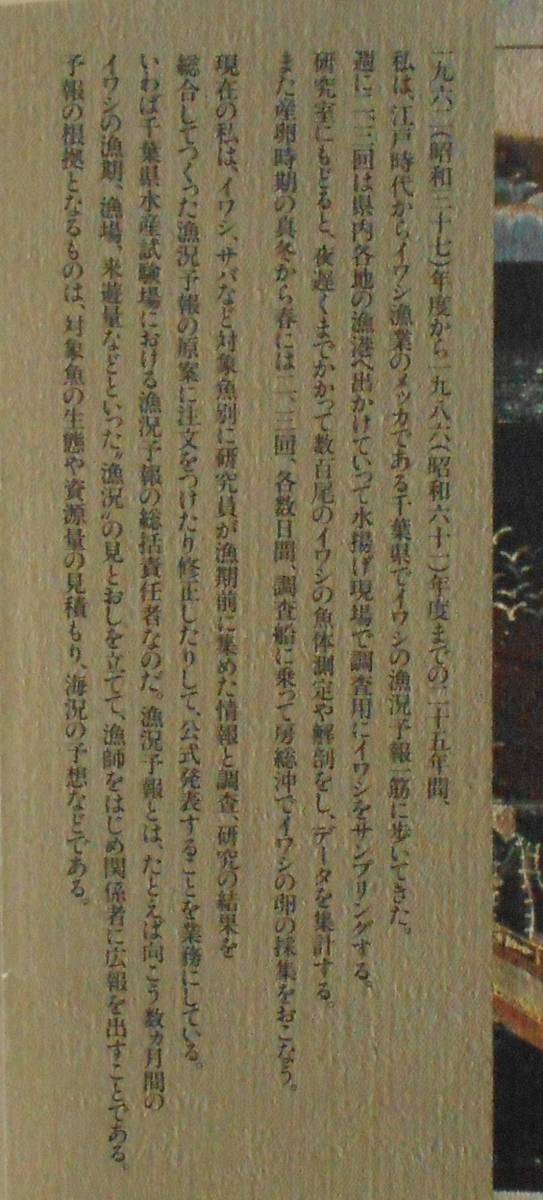 一九六二(昭和三十七)年度から一九八六(昭和六十一)年度までの二十五年間、
私は、江戸時代からイワシ漁業のメッカである千葉県でイワシの漁況予報一筋に歩いてきた。
週に二、三回は県内各地の漁港へ出かけていって水揚げ現場で調査用にイワシをサンプリングする。
研究室にもどると、夜遅くまでかかって数百尾のイワシの魚体測定や解剖をし、データを集計する。
また産卵時期の真冬から春には二、三回、各数日間、調査船に乗って房総沖でイワシの卵の採集をおこなう。
現在の私は、イワシ、サバなど対象魚別に研究員が漁期前に集めた情報と調査、研究の結果を
総合してつくった漁況予報の原案に注文をつけたり修正したりして、公式発表することを業務にしている。
いわば千葉県水産試験場における漁況予報の総括責任者なのだ。漁況予報とは、たとえば向こう数ヵ月間の
イワシの漁期、漁場、来遊量などといった〝漁況〟の見とおしを立てて、漁師をはじめ関係者に広報を出すことである。
予報の根拠となるものは、対象魚の生態や資源量の見積もり、海況の予想などである。